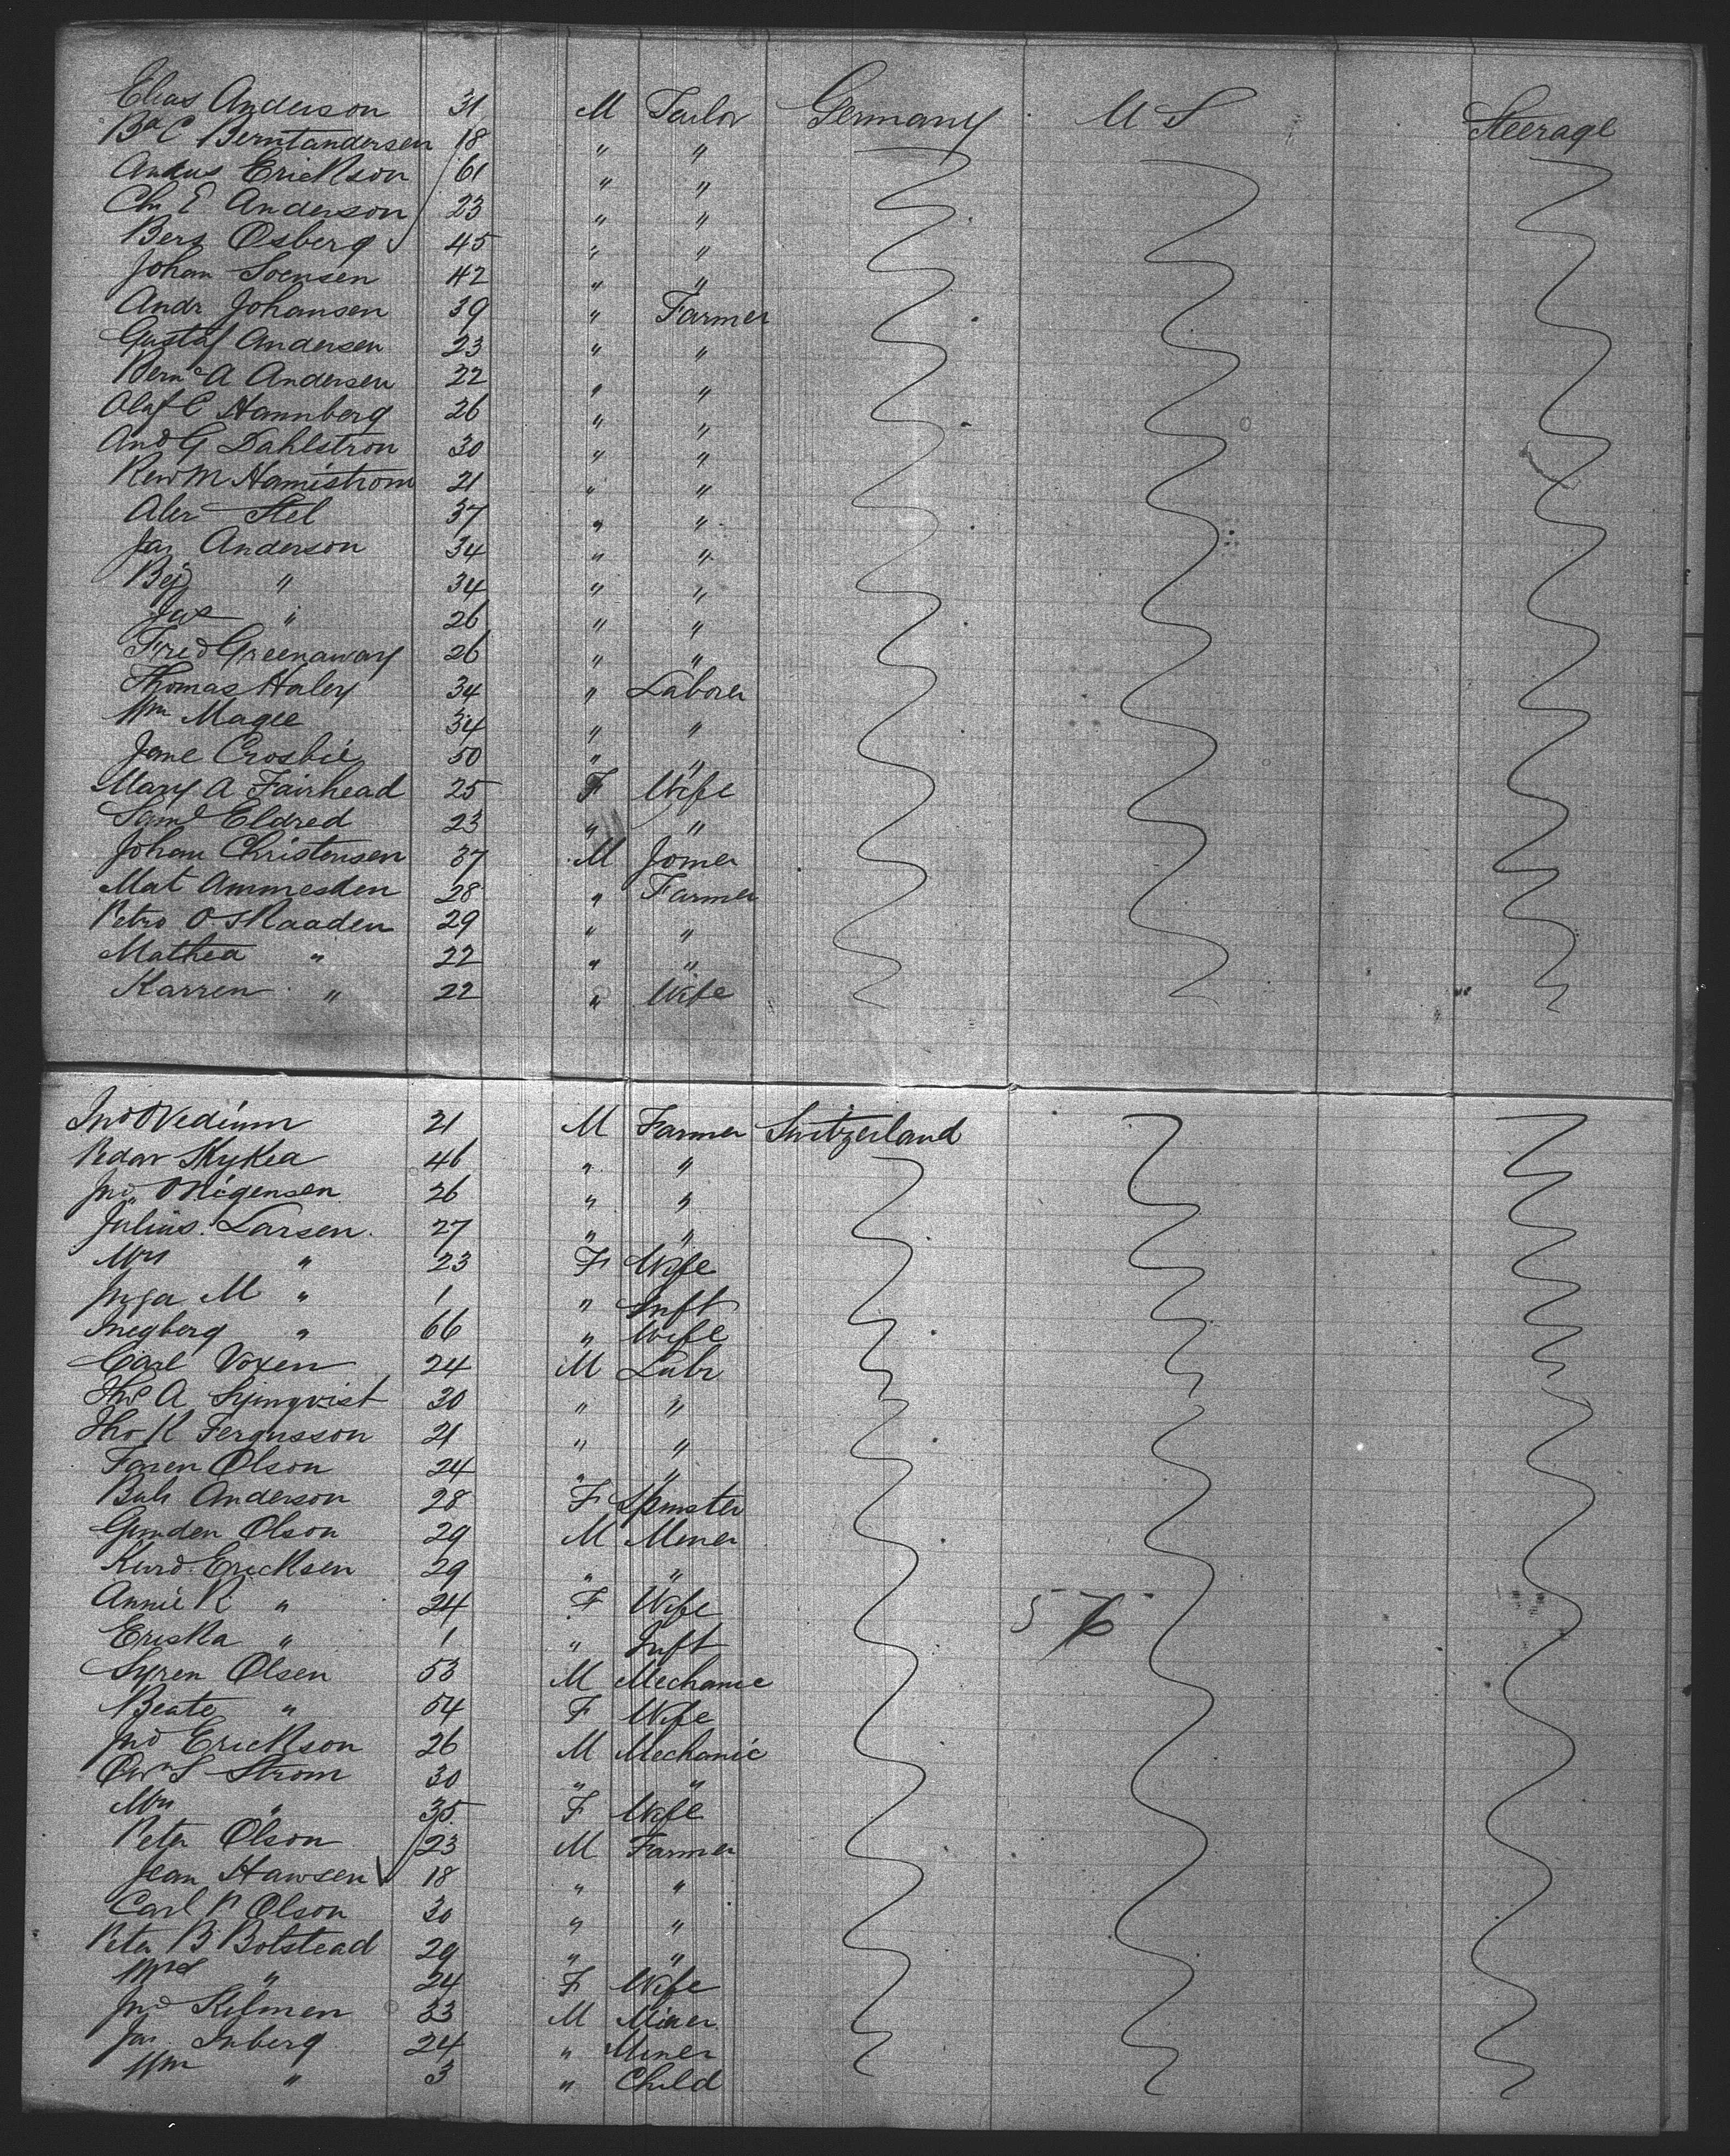 Elias Anderson 31 M Tailor Germany U S Steerage
Bd C Berntandersen 18 " "
Andus Erickson 61 " "
Ch E Anderson 23 " "
Berg Osberg 45 " "
Johan Soensen 42 " "
Andr Johansen 39 " Farmer
Gustaf Andersen 23 " "
Bern A Andersen 22 " "
Olaf C Hannberg 26 " "
And G Dahlstron 30 " "
M Hamistrom 21 " "
Alex Stel 37 " "
Jas Anderson 34 " "
Bej " 34 " "
Jas " 26 " "
Fred Greenaway 26 " "
Thomas Haley 34 " Laborer
Wm Magee 34 " "
Jane Crosbie 50 " "
Mary A Fairhead 25 F Wife
Saml Eldred 23 " "
Johan Christensen 37 M Joiner
Mat Ammesden 28 " Farmer
Petro O Skaaden 29 " "
Mathea " 22 " "
Karren " 22 " Wife
Jno O Vedium 21 M Farmer Switzerland
Pedar Skykea 46 " "
Jno O Mogensen 26 " "
Julius Larsen 27 " "
Mrs " 23 F Wife
Inga M " 1 " Inft
Inegberg " 66 " Wife
Carl Voxen 24 M Labr
Tho A Sjinqvist 30 " "
Tho K Fergusson 21 " "
Faren Olson 24 " "
Anderson 28 F Spinster
Gunden Olson 29 M Miner
Kurd Ericksen 29 " "
Annie K " 24 F Wife
576
Eriska " 1 " Inft
Syren Olsen 53 M Mechanic
Beate " 54 F Wife
Jno Erickson 26 M Mechanic
S Strom 30 " "
Mrs " 35 F Wife
Peter Olson 23 M Farmer
Jean Hawsen 18 " "
Carl P Olson 30 " "
Peter B Bolstead 29 " "
Mrs " 24 F Wife
Jno Kilmen 33 M Miner
Jas Inberg 24 " Miner
Wm " 3 " Child